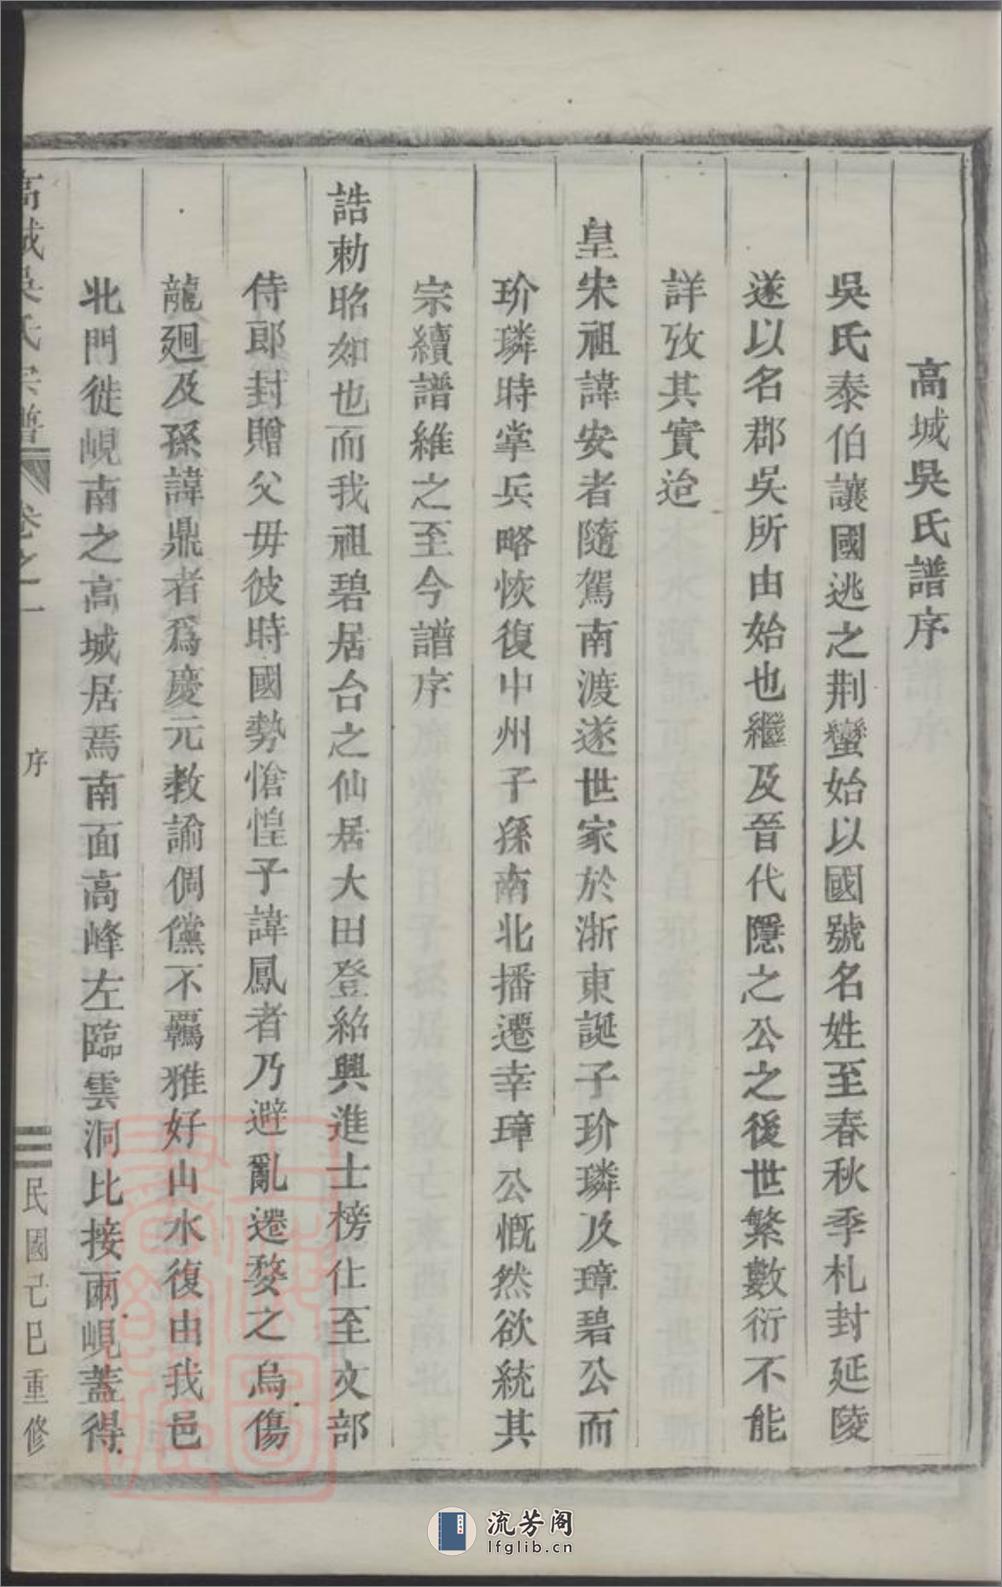 高城吳氏譜序
吳氏泰伯讓國逃之荆蠻始以國號名姓至春秋季札封延陵
遂以名郡吳所由始也繼及晉代隱之公之後世繁數衍不能
詳攷其實迨
皇宋祖諱安者隨駕南渡遂世家於浙東誕子玠璘及璋碧公而
玠璘時掌兵略恢復中州子孫南北播遷幸璋公慨然欲統其
宗續譜維之至今譜序
誥勅昭如也而我祖碧居台之仙居大田登紹興進士榜仕至文部
侍郎封贈父毋彼時國勢愴惶子諱鳳者乃避亂遷婺之烏傷
龍廻及孫諱鼎者爲慶元教諭倜儻不羈雅好山水復由我邑
北門徙峴南之高城居焉南面高峰左臨雲洞比接兩峴蓋得
高城吳氏宗譜 卷之一 序 民國己巳重修
流芳阁
lfglib.cn